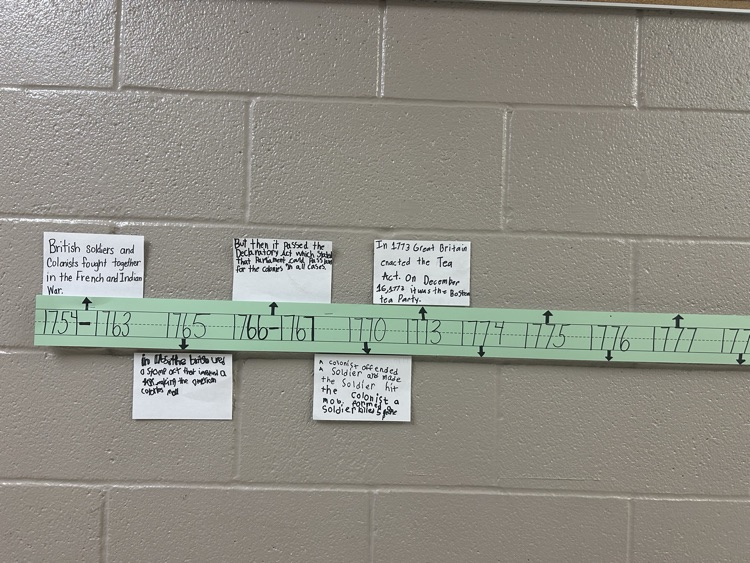 British soldiers and
Colonists fought together
in the French and Indian
War.
But then it passed the
Declaratory Act which stated
That Parliament could pass laws
for the colonies in all cases.
In 1773 Great Britain
enacted the Tea
Act. On December
16, 1773 it was the Boston
tea Party.
1754-1763 1765 1766-1767 1770 1773 1774 1775 1776 1777
in the british
a stamp act that a
making the american
A colonist offended
a soldier and made
the Soldier hit
the colonist a
mob formed
Soldier killed